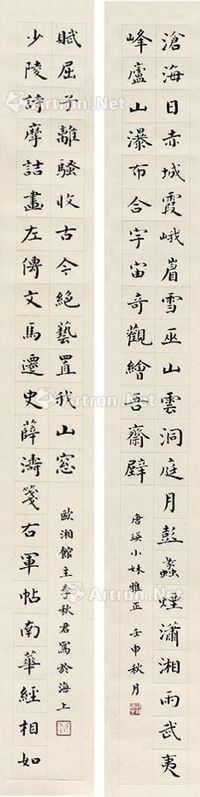 滄海日赤城霞峨眉雪巫山雲洞庭月彭蠡煙瀟湘雨武夷
峰廬山瀑布合宇宙奇觀繪吾齋壁
唐瑛小妹雅正 壬申秋月
少陵詩摩詰畫左傳文馬遷史薛濤箋右軍帖南華經相如
賦屈子離騷收古今絕藝置我山窓
歐湘館主李秋君寫於海上
Artron.Net
Artron.Net
Artron.Net
Artron.Net